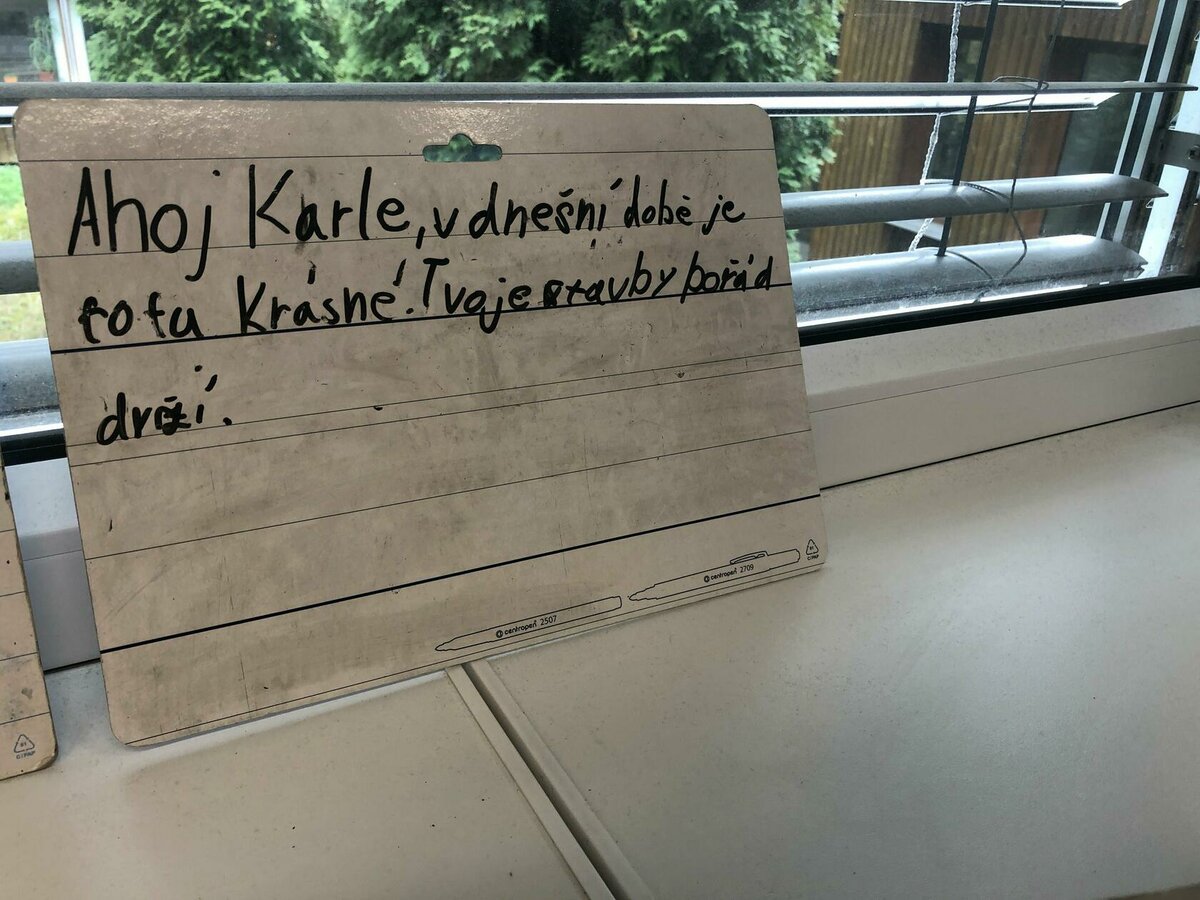 Ahoj Karle, v dnešní době je
totu krásné! Tvoje stavby pořád
drží.
centropen 2507
centropen 2709
81
C/PAP
81
C/PAP